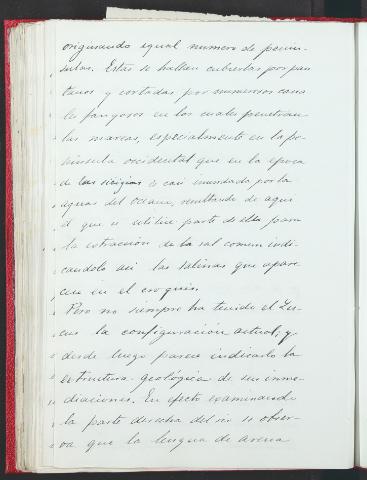 originando igual numero de penin-
sulas. Estas se hallan cubiertas por pan
tanos y cortadas por numerosos cana
les fangosos en los cuales penetran
las mareas, especialmente en la pe-
ninsula occidental que en la epoca
de las sicigias es casi inundada por la
aguas del Oceano, resultando de aqui
el que se utilice parte de ella para
la extracción de la sal comun indi-
candolo asi las salinas que apare
cen en el croquis.
Pero no siempre ha tenido el Lu-
cus la configuración actual, y
desde luego parece indicarlo la
estructura geológica de sus inme-
diaciones. En efecto examinando
la parte derecha del rio se obser-
va que la lengua de arena